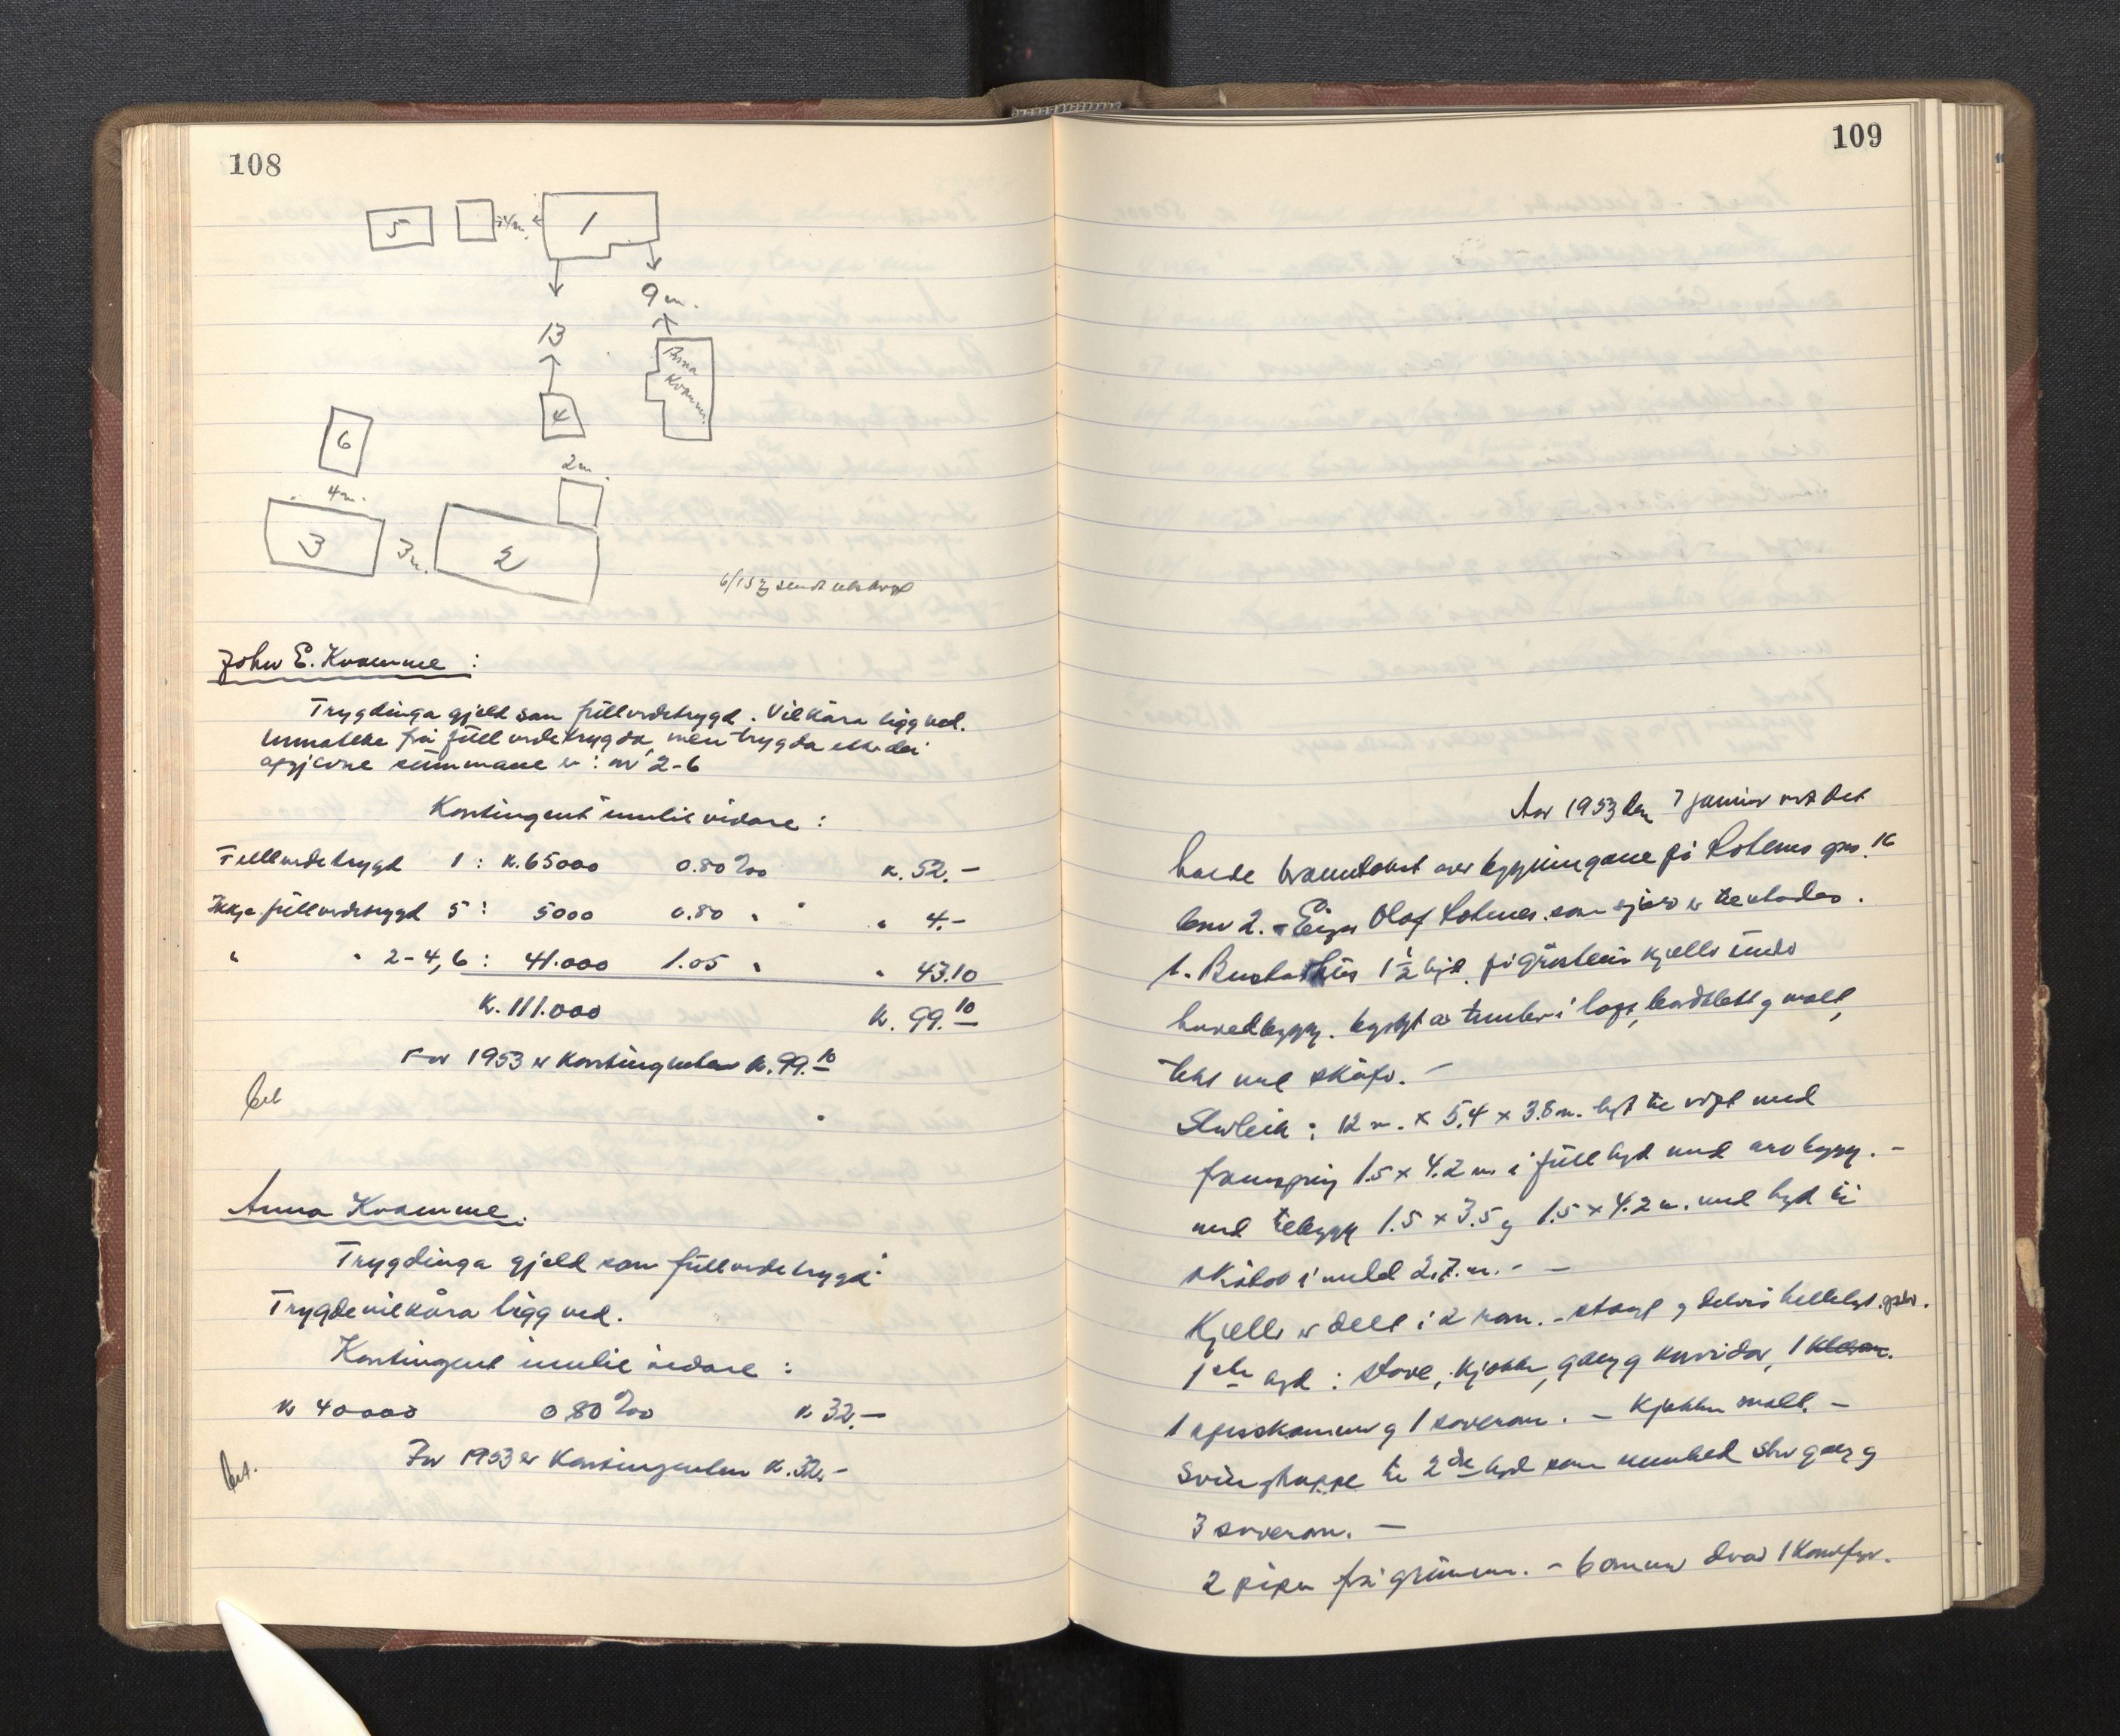 108
5
1
9 m.
13
Anna
Kvamme
4
6
2 m.
4 m.
3
3 m.
2
6/1 53 sendt utskrift
John E. Kvamme :
Trygdinga gjeld som fullverdetrygd. Vilkåra ligg ved.
Unnateke frå fullverdetrygda, men trygda etter dei
oppgjevne summane er : nr 2-6
Kontingent innlie vidare :
Fullverdetrygd 1 : k. 65000 0.80 ‰ k. 52.—
Ikkje fullverdetrygd 5 : 5000 0.80 " " 4.-
" " 2-4, 6 : 41.000 1.05 " " 43.10
k. 111.000 k. 99.10
For 1953 er kontingenten k. 99.10
Bet
Anna Kvamme.
Trygdinga gjeld som fullverdetrygd.
Trygdevilkåra ligg ved.
Kontingent innlie vidare :
k 40000 0.80 ‰ k 32.—
For 1953 er kontingenten k. 32.-
Bet.
109
Aar 1953 den 7 januar vart det
halde branntakst over bygningane på Lotenes gnr. 16
bnr 2. - Eigar Olaf Lotenes som sjølv er tilstades.
1. Bustadhus 1½ høgd. på gråstein kjeller under
hovedbygg. bygt av tømber i laft, bordklett og malt,
tekt med skifer. -
Storleik : 12 m. x 5,4 x 3.8 m. høgt til røst med
framspring 1.5 x 4.2 m. i full høgd med arkbygg. -
med tilbygg 1.5 x 3.5 og 1.5 x 4.2 m. med høgd til
skråtak i middel 2,7 m. - -
Kjeller er delt i 2 rom. - støypt og delvis hellelagt golv.
1ste høgd : stove, kjøkken, gang og korridor, 1
1 spiskammer og 1 soverom. - Kjøkken malt. -
Svingtrappe til 2dre høgd som inneheld stor gang og
3 soverom. -
2 piper frå grunnen. - 6 omnar derav 1 komfyr.